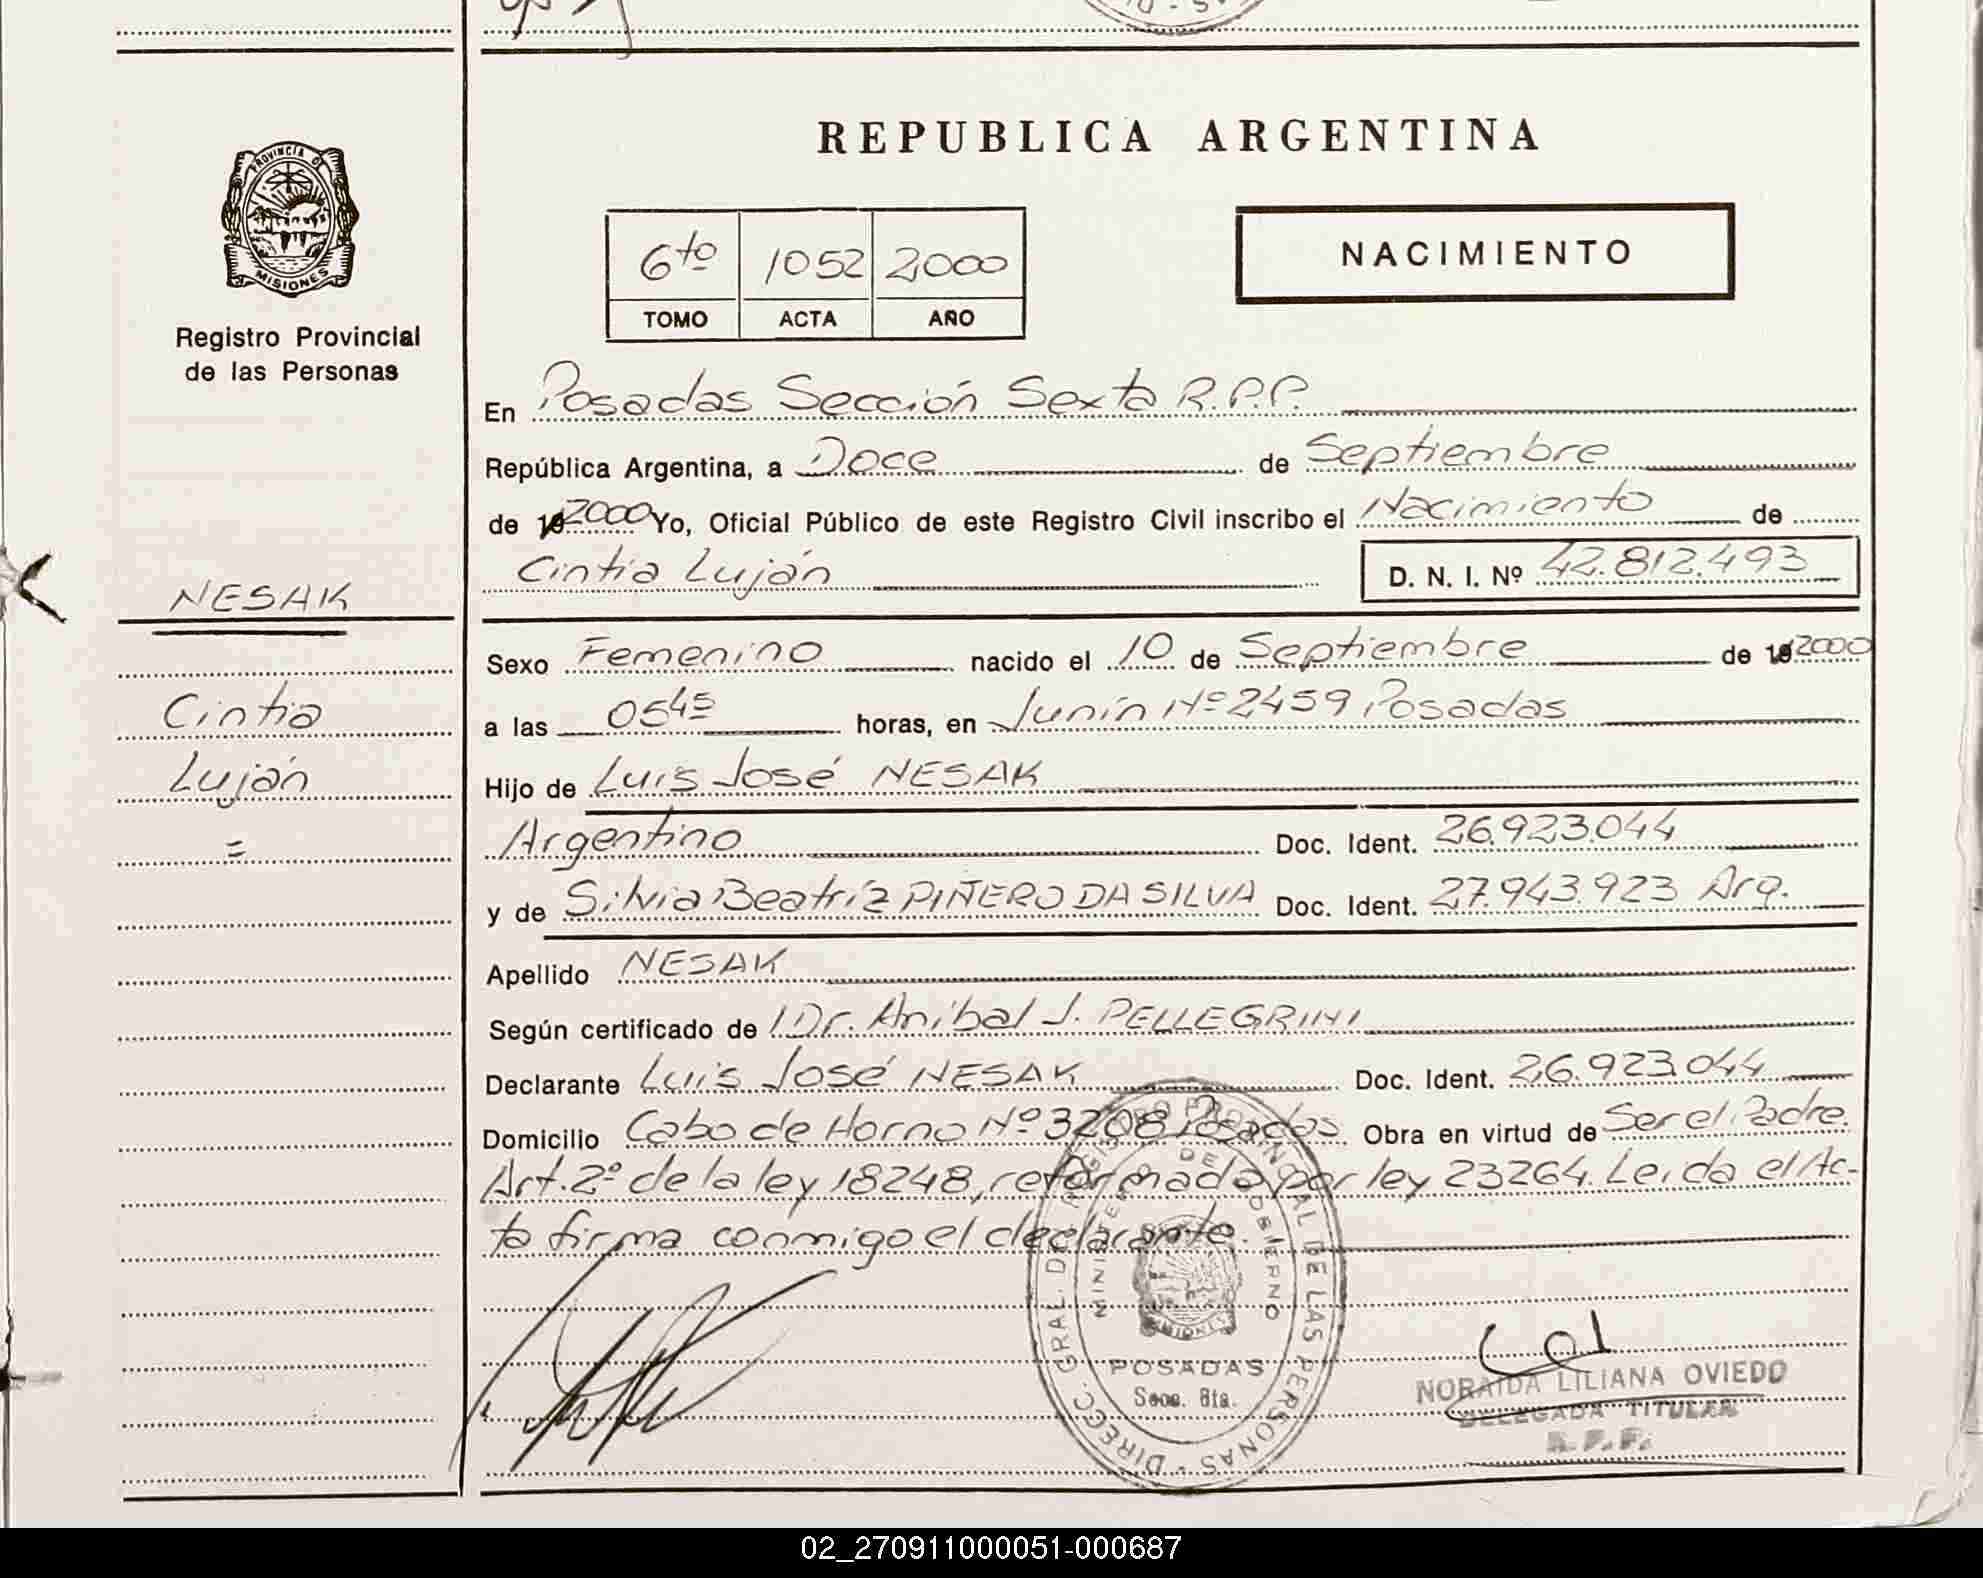 PROVINCIA D
MISIONES
Registro Provincial
de las Personas
NESAK
Cintia
Luján
=
REPUBLICA ARGENTINA
6to 1052 2000
TOMO ACTA AÑO
NACIMIENTO
En Posadas Sección Sexta R.P.P.
República Argentina, a Doce de Septiembre
de 19 2000 Yo, Oficial Público de este Registro Civil inscribo el Nacimiento de
Cintia Luján D. N. I. Nº 42.812.493
Sexo Femenino nacido el 10 de Septiembre de 19 2000
a las 05 45 horas, en Junín Nº 2459 Posadas
Hijo de Luis José NESAK
Argentino Doc. Ident. 26.923.044
y de Silvia Beatríz PIÑERO DA SILVA Doc. Ident. 27.943.923 Arg.
Apellido NESAK
Según certificado de Dr. Aníbal J. PELLEGRINI
Declarante Luis José NESAK Doc. Ident. 26.923.044
Domicilio Cabo de Horno Nº 3208 Posadas. Obra en virtud de Ser el Padre.
Art. 2º de la ley 18248, reformada por ley 23264. Leida el Ac-
ta firma conmigo el declarante.
DIRECC. GRAL. DEL REGISTRO PROVINCIAL DE LAS PERSONAS -
MINISTERIO DE GOBIERNO
MISIONES
POSADAS
Secc. 6ta.
NORAIDA LILIANA OVIEDO
DELEGADA TITULAR
R. P. P.
02_270911000051-000687